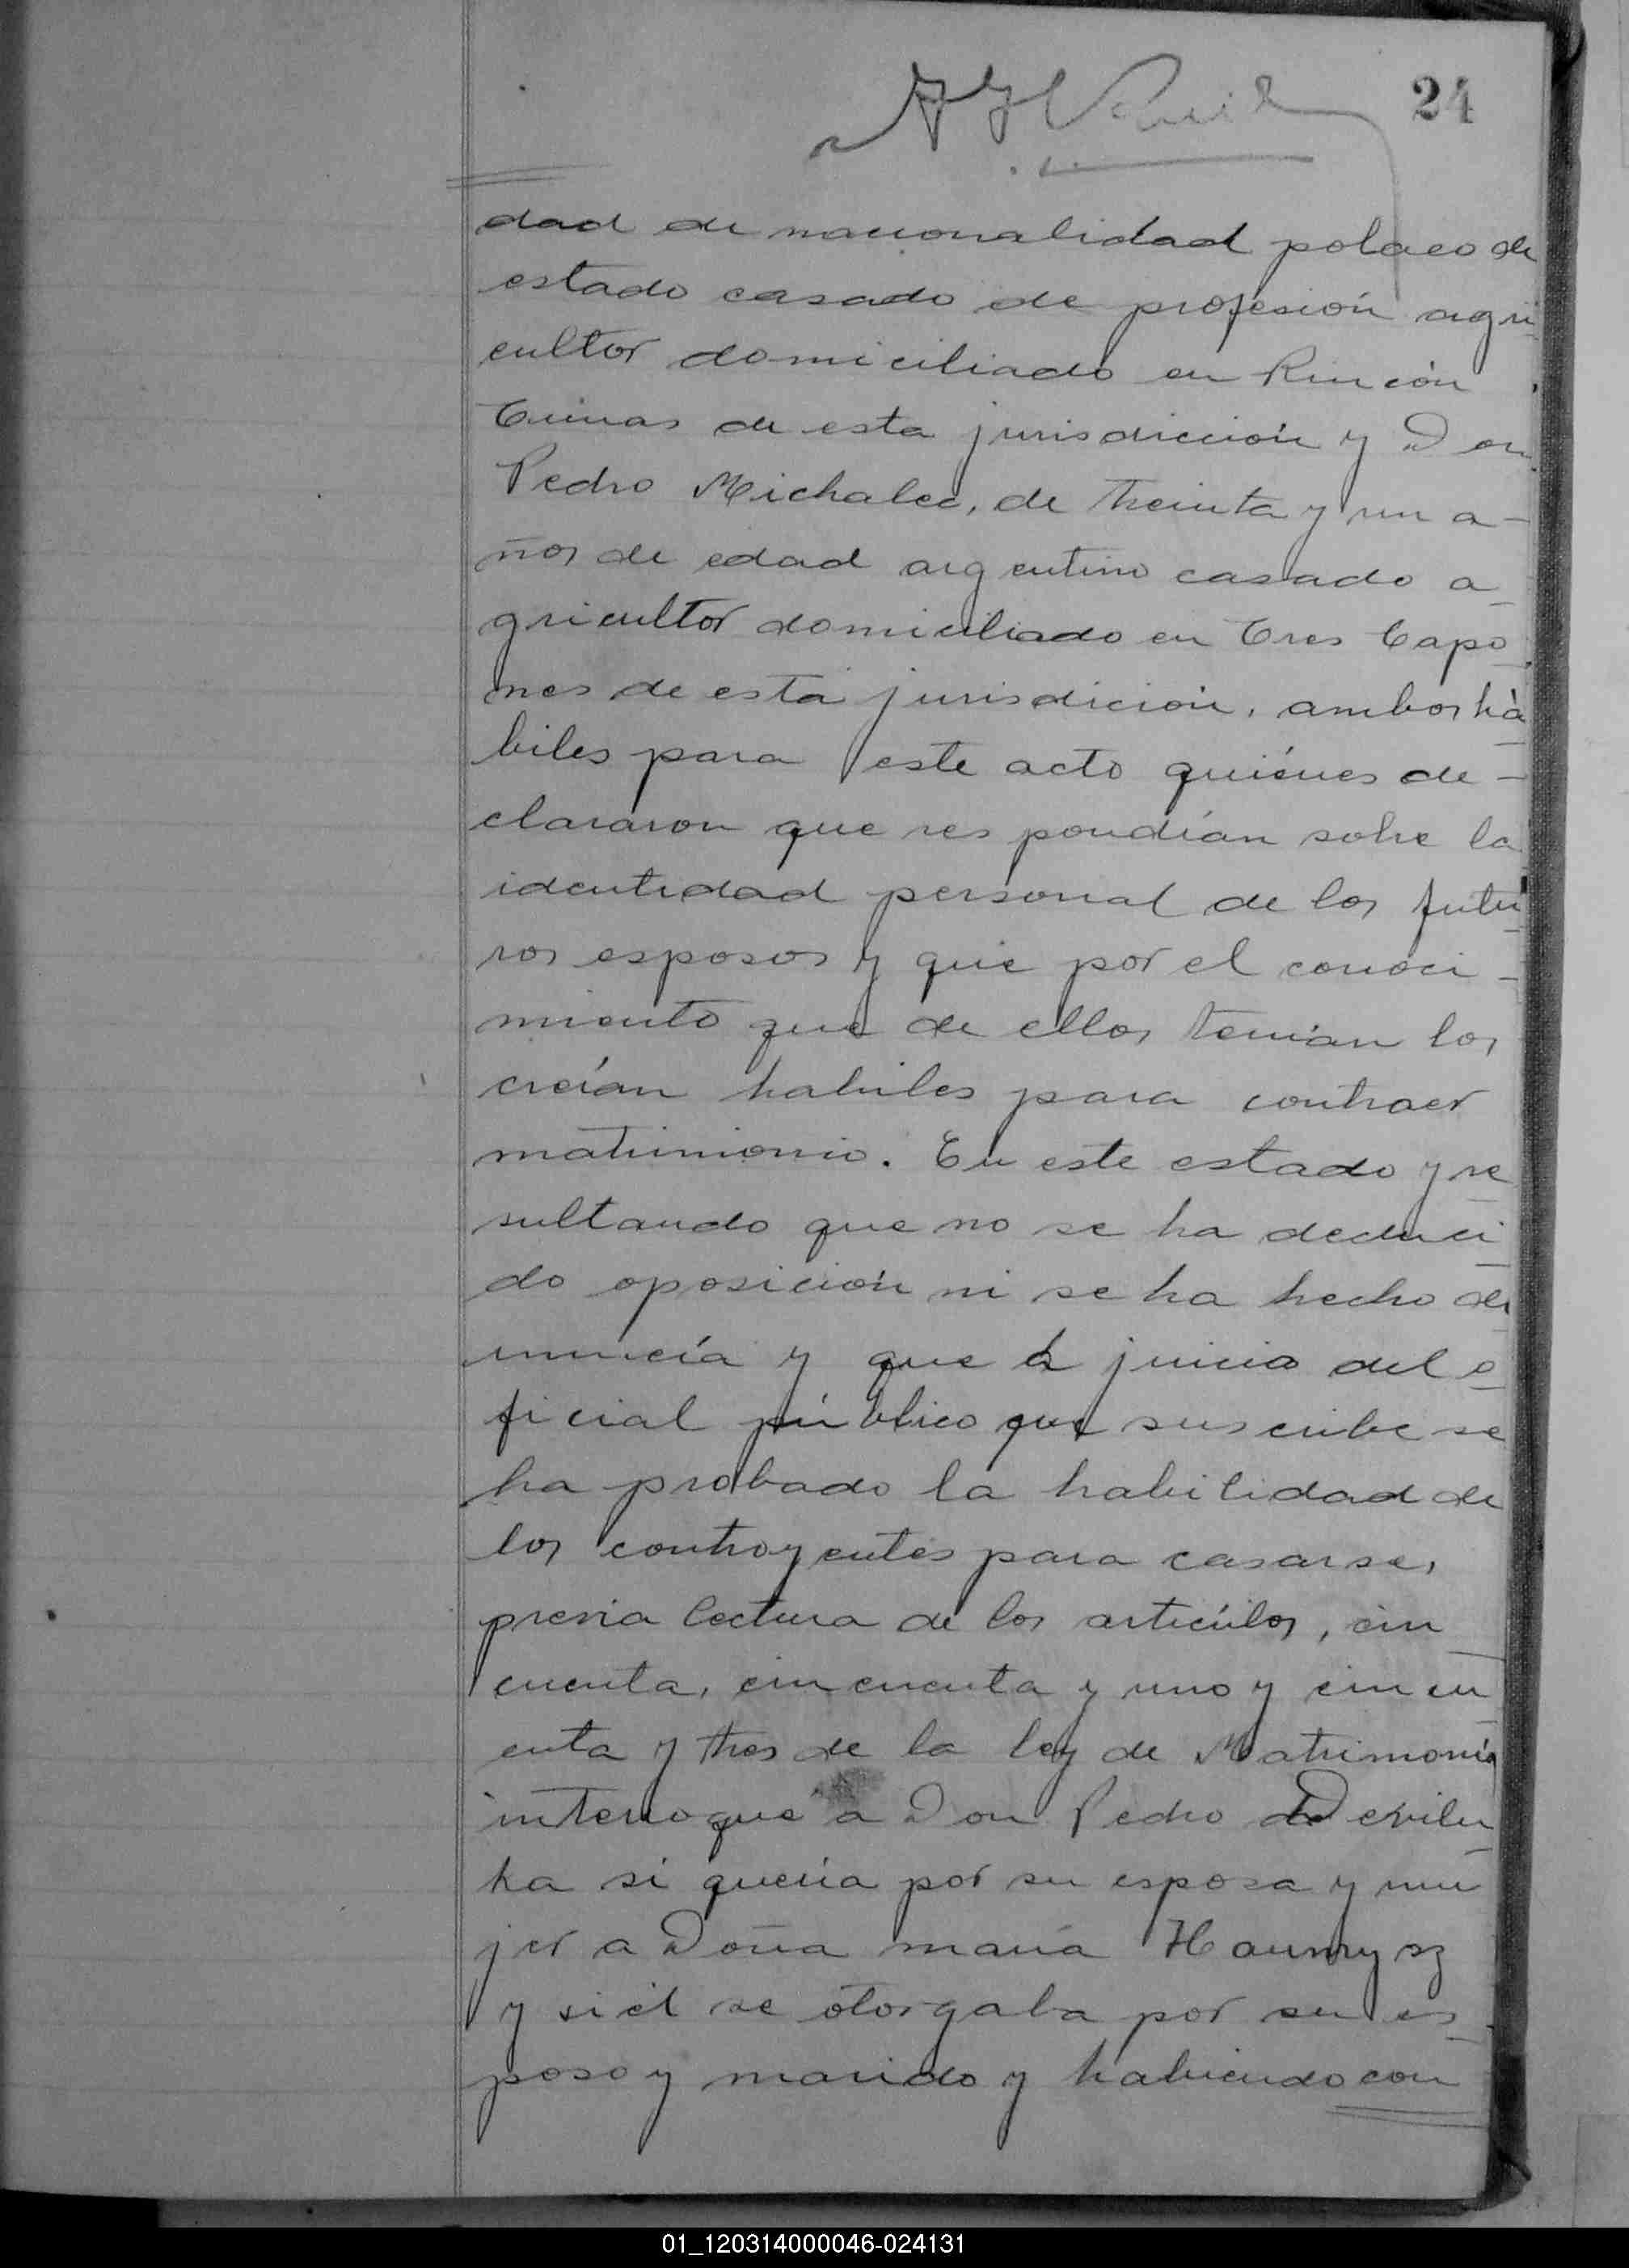 24
dad de nacionalidad polaco de
estado casado de profesión agri
cultor domiciliado en Rincón
de esta jurisdicción y Don
Pedro Michalec, de treinta y un a-
ños de edad argentino casado a
gricultor domiciliado en Tres Capo
nes de esta jurisdición, ambos há
biles para este acto quiénes de-
clararon que respondían sobre la
identidad personal de los futu
ros esposos y que por el conoci-
miento que de ellos tenían los
creían habiles para contraer
matrimonio. En este estado y re
sultando que no se ha deduci
do oposición ni se ha hecho de
nuncía y que a juicio del o
ficial público que suscribe se
ha probado la habilidad de
los contrayentes para casarse,
previa lectura de los artículos, cin
cuenta, cincuenta y uno y cincu
enta y tres de la ley de Matrimonio
interroque a Don Pedro
ha si quería por su esposa y mu
jer a Doña maría
y si él se otorgaba por su es
poso y marido y habiendo con
01_120314000046-024131